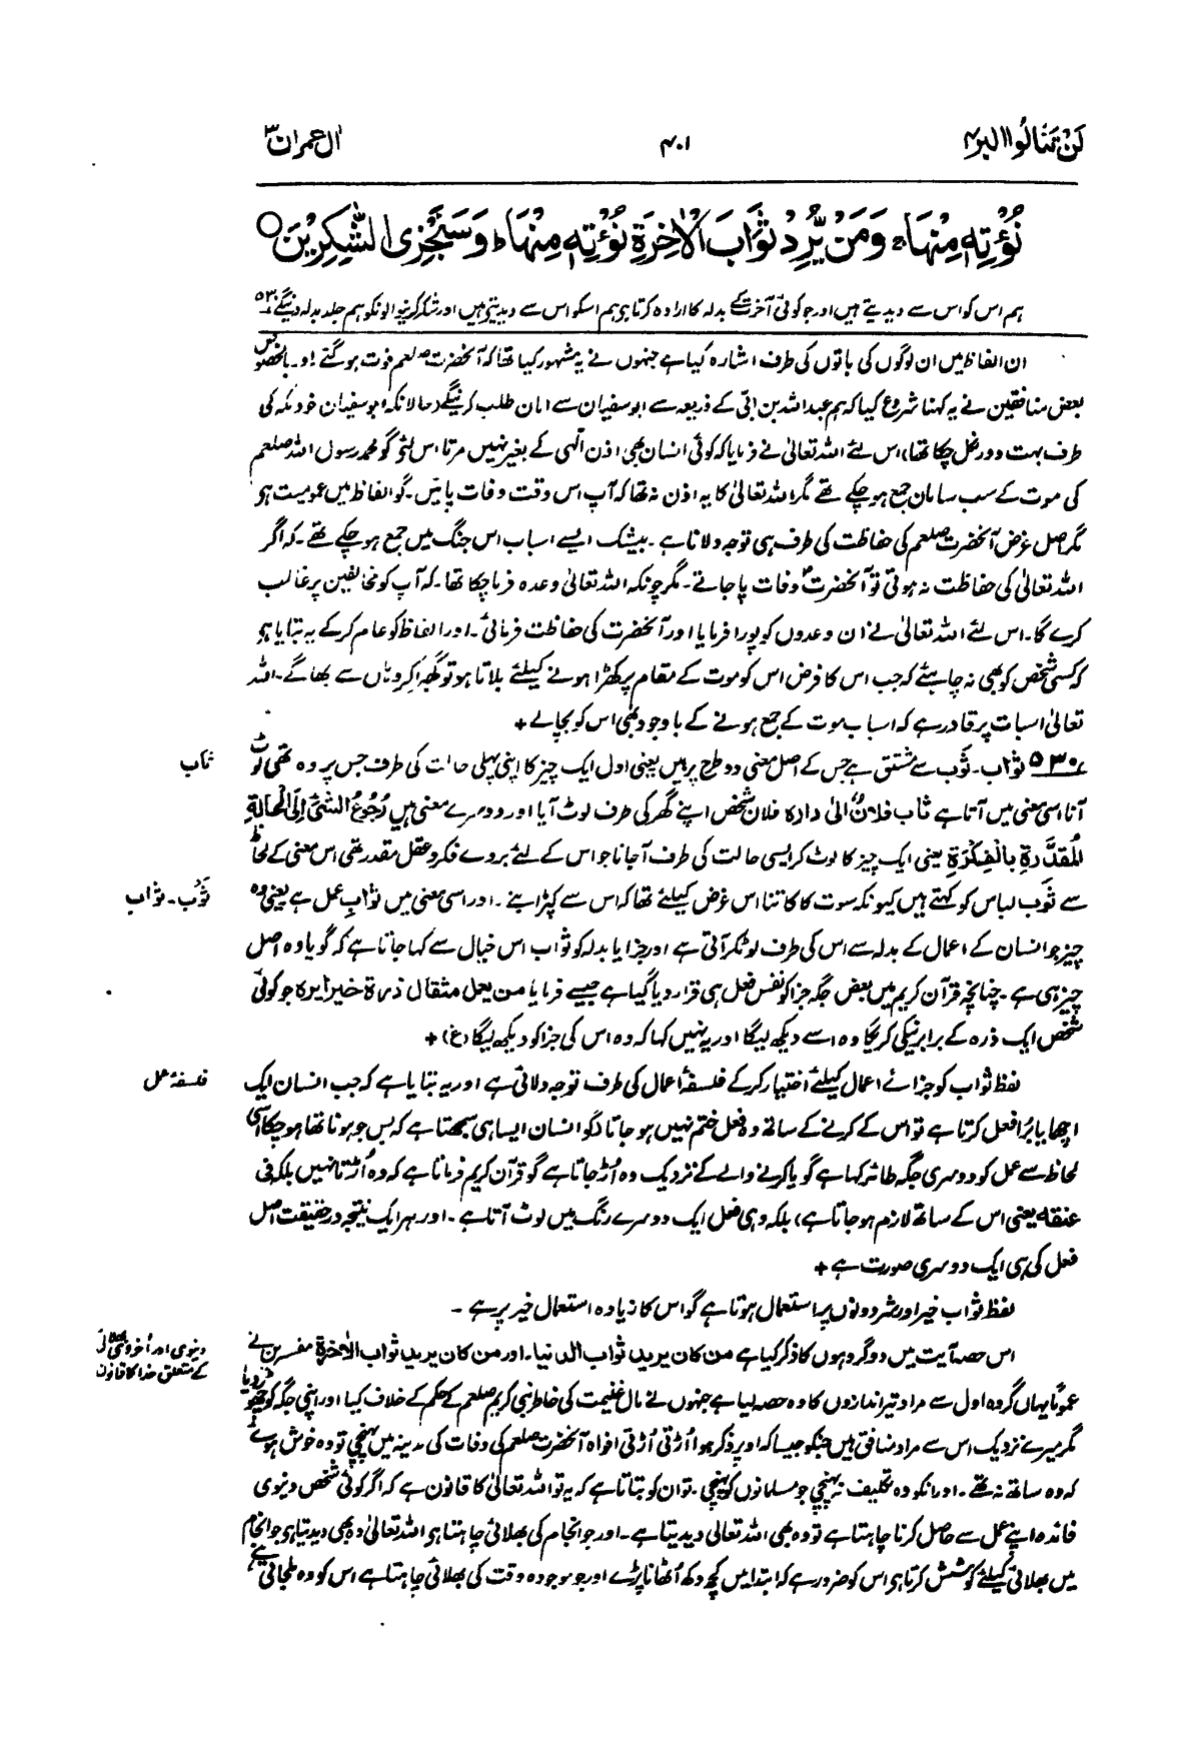 لَنْ تَنَالُوا البر۴
۴۰۱
اٰل عمران ۳
نُؤْتِهٖ مِنْهَا ۚ وَمَنْ يُّرِدْ ثَوَابَ الْاٰخِرَةِ نُؤْتِهٖ مِنْهَا ؕ وَسَنَجْزِى الشّٰكِرِيْنَ ○
ہم اس کو اس سے دیدیتے ہیں اور جو کوئی آخرت کے بدلہ کا ارادہ کرتا ہو ہم اسکو اس سے دیدیتے ہیں اور شکر کرنیوالونکو ہم جلد بدلہ دینگے ۵۳۰
ان الفاظ میں ان لوگوں کی باتوں کی طرف اشارہ کیا ہے جنہوں نے یہ مشہور کیا تھا کہ آنحضرت صلعم فوت ہو گئے اور بالخصوص
بعض منافقین نے یہ کہنا شروع کیا کہ ہم عبداللہ بن ابی کے ذریعہ سے ابوسفیان سے امان طلب کرینگے (حالانکہ ابوسفیان خود مکہ کی
طرف بہت دور نکل چکا تھا) اس لئے اللہ تعالیٰ نے فرمایا کہ کوئی انسان بھی اذن الٰہی کے بغیر نہیں مرتا اس لئے گو محمد رسول اللہ صلعم
کی موت کے سب سامان جمع ہو چکے تھے مگر اللہ تعالیٰ کا یہ اذن نہ تھا کہ آپ اس وقت وفات پائیں۔ گو الفاظ میں عمومیت ہو
مگر اصل غرض آنحضرت صلعم کی حفاظت کی طرف ہی توجہ دلانا ہے۔ بیشک ایسے اسباب اس جنگ میں جمع ہو چکے تھے۔ کہ اگر
اللہ تعالیٰ کی حفاظت نہ ہوتی تو آنحضرت ؐ وفات پا جاتے۔ مگر چونکہ اللہ تعالیٰ وعدہ فرما چکا تھا۔ کہ آپ کو مخالفین پر غالب
کرے گا۔ اس لئے اللہ تعالیٰ نے ان وعدوں کو پورا فرمایا اور آنحضرت کی حفاظت فرمائی۔ اور الفاظ کو عام کر کے یہ بتایا ہو
کہ کسی شخص کو بھی نہ چاہئے کہ جب اس کا فرض اس کو موت کے مقام پر کھڑا ہونے کیلئے بلاتا ہو تو گھبرا کر وہاں سے بھاگے۔ اللہ
تعالیٰ اسبات پر قادر ہے کہ اسباب موت کے جمع ہونے کے باوجود بھی اس کو بچالے +
۵۳۰ ثواب۔ ثوب سے مشتق ہے جس کے اصل معنی دو طرح پر ہیں یعنی اول ایک چیز کا اپنی پہلی حالت کی طرف جس پر وہ تھی لوٹ
ثاب
آنا اسی معنی میں آتا ہے ثاب فلان الیٰ دارہ فلاں شخص اپنے گھر کی طرف لوٹ آیا اور دوسرے معنی ہیں رُجُوعُ الشَّئِ اِلَى الْحَالَةِ
الْمُقَدَّرَةِ بِالْفِكْرَةِ یعنی ایک چیز کا لوٹ کر ایسی حالت کی طرف آجانا جو اس کے لئے بروے فکر و عقل مقدر تھی اس معنی کے لحاظ
سے ثوب لباس کو کہتے ہیں کیونکہ سوت کا کاتنا اس غرض کیلئے تھا کہ اس سے کپڑا بنے۔ اور اسی معنی میں ثواب عمل ہے یعنی وہ
ثَوْب۔ ثواب
چیز جو انسان کے اعمال کے بدلہ سے اس کی طرف لوٹکر آتی ہے اور جزا یا بدلہ کو ثواب اس خیال سے کہا جاتا ہے کہ گویا وہ اصل
چیز ہی ہے۔ چنانچہ قرآن کریم میں بعض جگہ جزا کو نفس فعل ہی قرار دیا گیا ہے جیسے فرمایا من یعمل مثقال ذرة خیرا یره جو کوئی
شخص ایک ذرہ کے برابر نیکی کریگا وہ اسے دیکھ لیگا اور یہ نہیں کہا کہ وہ اس کی جزا کو دیکھ لیگا (غ) +
لفظ ثواب کو جزائے اعمال کیلئے اختیار کر کے فلسفۂ اعمال کی طرف توجہ دلائی ہے اور یہ بتایا ہے کہ جب انسان ایک
فلسفۂ عمل
اچھا یا بُرا فعل کرتا ہے تو اس کے کرنے کے ساتھ وہ فعل ختم نہیں ہو جاتا (گو انسان ایسا ہی سمجھتا ہے کہ بس جو ہونا تھا ہو چکا اسی
لحاظ سے عمل کو دوسری جگہ طائر کہا ہے گویا کرنے والے کے نزدیک وہ اُڑ جاتا ہے گو قرآن کریم فرماتا ہے کہ وہ اُڑتا نہیں بلکہ فی
عنقه یعنی اس کے ساتھ لازم ہو جاتا ہے) بلکہ وہی فعل ایک دوسرے رنگ میں لوٹ آتا ہے۔ اور ہر ایک نتیجہ درحقیقت اصل
فعل کی ہی ایک دوسری صورت ہے +
لفظ ثواب خیر اور شر دونوں پر استعمال ہوتا ہے گو اس کا زیادہ استعمال خیر پر ہے ۔
اس حصہ آیت میں دو گروہوں کا ذکر کیا ہے من کان یرید ثواب الدنیا۔ اور من کان یرید ثواب الاٰخرة مفسرین نے
دنیوی اور اُخروی بھلائی
کے متعلق خدا کا قانون
عموماً یہاں گروہ اول سے مراد تیر اندازوں کا وہ حصہ لیا ہے جنہوں نے مال غنیمت کی خاطر نبی کریم صلعم کے حکم کے خلاف کیا اور اپنی جگہ کو چھوڑ دیا
مگر میرے نزدیک اس سے مراد منافق ہیں جنکو جیسا کہ اوپر ذکر ہوا اُڑتی اُڑتی افواہ آنحضرت صلعم کی وفات کی مدینہ میں پہنچی تو وہ خوش ہوئے
کہ وہ ساتھ نہ تھے۔ اور انکو وہ تکلیف نہ پہنچی جو مسلمانوں کو پہنچی۔ تو ان کو بتاتا ہے کہ یہ تو اللہ تعالیٰ کا قانون ہے کہ اگر کوئی شخص دنیوی
فائدہ اپنے عمل سے حاصل کرنا چاہتا ہے تو وہ بھی اللہ تعالیٰ دیدیتا ہے۔ اور جو انجام کی بھلائی چاہتا ہو اللہ تعالیٰ وہ بھی دیدیتا ہو جو انجام
میں بھلائی کیلئے کوشش کرتا ہو اس کو ضرور ہے کہ ابتدا میں کچھ دکھ اُٹھانا پڑے اور جو موجودہ وقت کی بھلائی چاہتا ہے اس کو وہ مل جاتی ہے